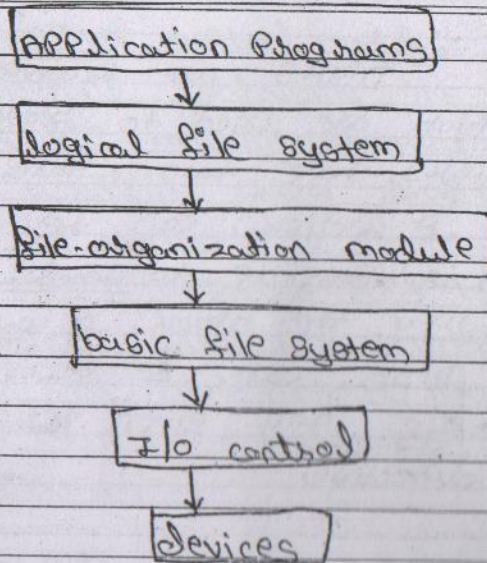 Application Programs
logical file system
file-organization module
basic file system
I/o control
devices